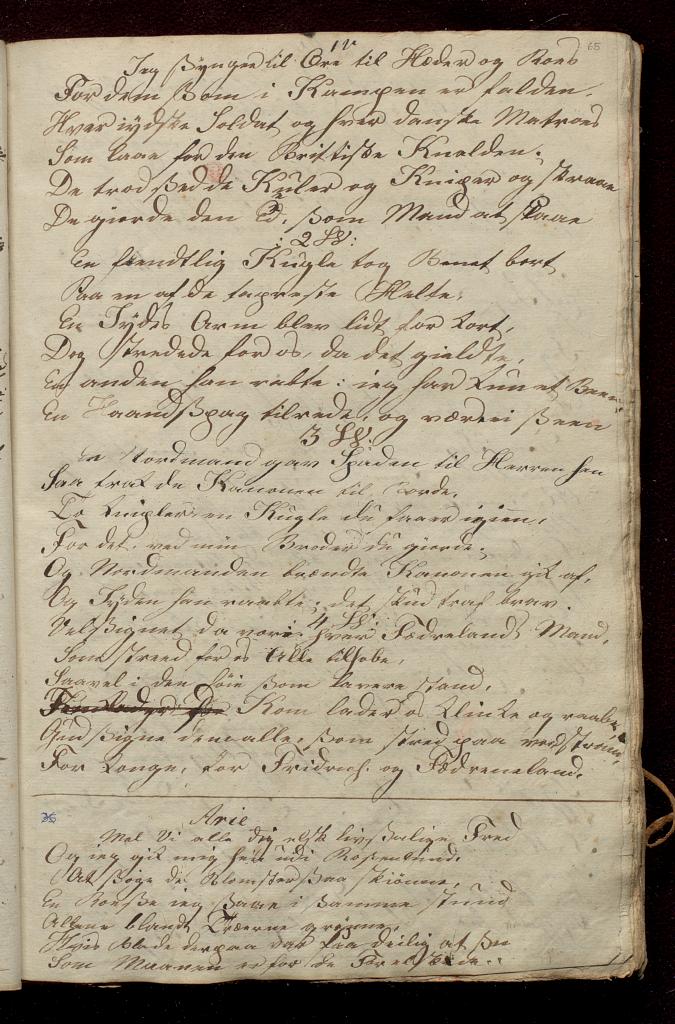 65
1 V
Jeg siunger til Ære til Hæder og Roes
For dem som i Kampen er falden.
Hver iydske Soldat og hver danske Matroes
Som laae for den Brittiske Knalden.
De trodsede Kuler og Knipler og
De giorde den 2d. som Mand at slaae
: 2 SV:
En fiendtlig Kugle tog Benet bort
Paa en af de tapreste Helte,
En Jydes Arm blev lidt for kort,
Dog stredede for os, da det gieldte,
En anden han raabte: ieg har kun et Been
En Haandspag tilrede, og
3 SV:
Nordmand gav Jyden til
Saa traf de Kanonen til Borde,
To Knipler en Kugle du faaer igien,
For det, ved min Broder du giorde.
Og Nordmanden brændte Kanonen gik af,
Og Jyden han raabte: det skud traf brav.
4 SV:
Velsignet da være hver Fædrelands Mand,
Som streed for os Alle tilhobe,
Saavel i den høie som lavere stand,
Kom lader os klinke og raabe,
Gud signe dem alle, som stred paa
For Konge, for Fridrich og Fædreneland.
36
Arie
Mel Vi alle dig elsk livsalige Fred
Og ieg gik mig hen udi Rosenlund,
At søge de Blomster saa skiønne,
En Roese ieg saae i samme stund
Allene blandt Træerne grønne,
Hvis Blade derpaa var saa deilig at see
Som Maanen er for de